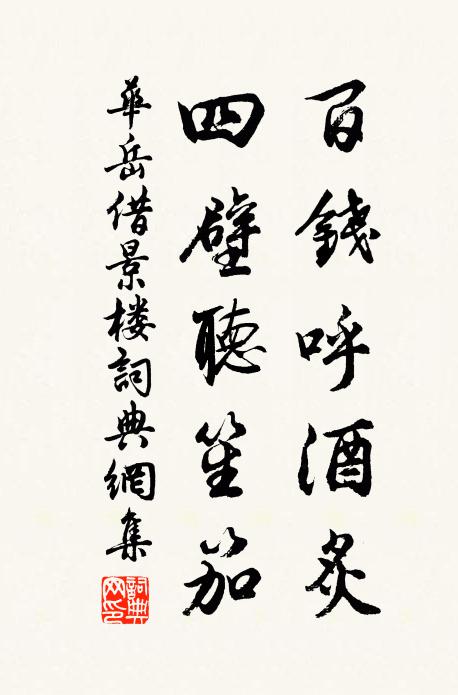 百錢呼酒炙
四壁聽笙笳
華岳借景楼詞典網集
詞典网印